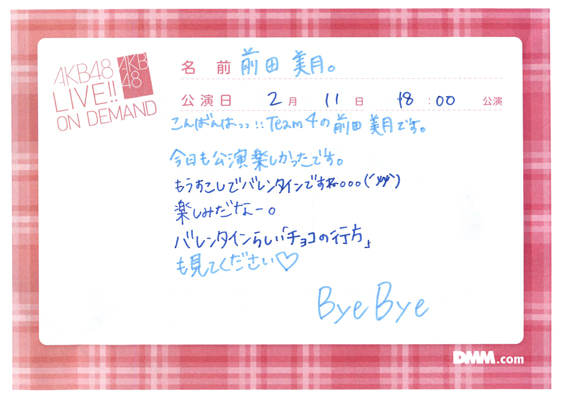 AKB48
LIVE!!
ON DEMAND
AKB
48
名 前 前田 美月。
公演日 2月 11日 18:00 公演
こんばんはっっ!! Team4の前田美月です。
今日も公演楽しかったです。
もうすこしでバレンタインですね。。。
楽しみだなー。
バレンタインらしい「チョコの行方」
も見てください♡
Bye Bye
DMM.com